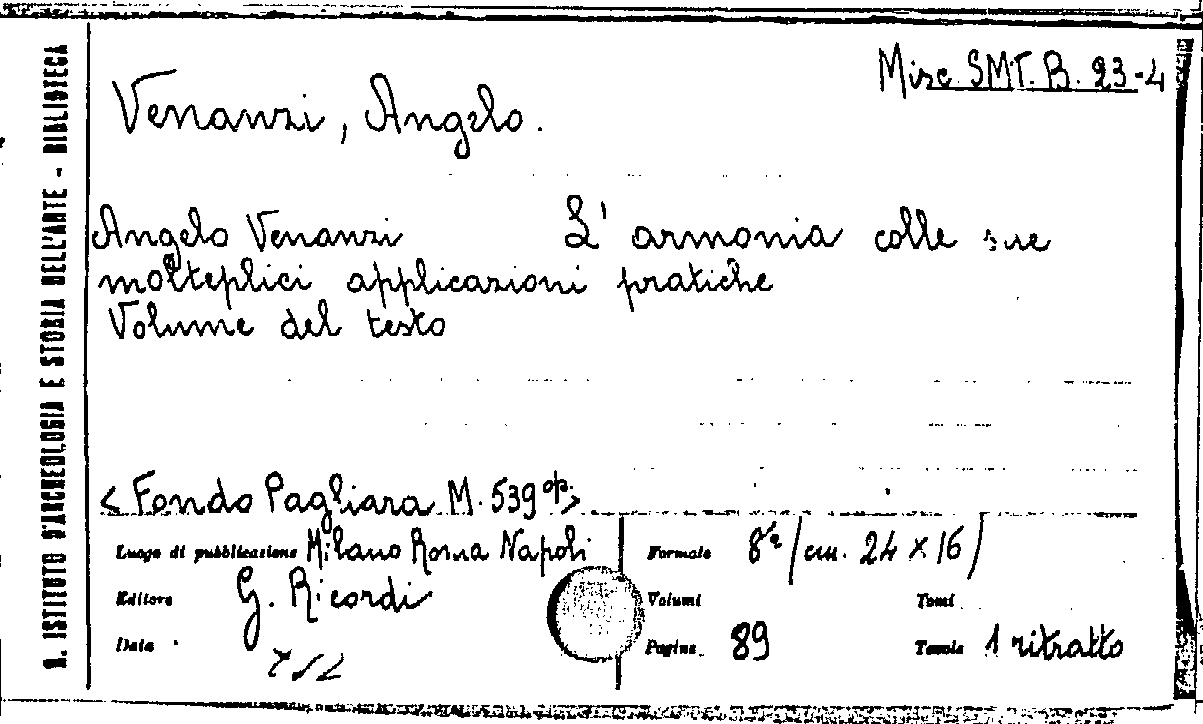 Misc. SMT. B. 23-4
Venanzi, Angelo.
Angelo Venanzi L' armonia colle sue
molteplici applicazioni pratiche
Volume del testo
< Fondo Pagliara M. 539 op>
Luogo di pubblicazione Milano Roma Napoli
Editore G. Ricordi
Data
Formato 8º (cm. 24 x 16)
Volumi Tomi
Pagine 89 Tavole 1 ritratto
R. ISTITUTO D'ARCHEOLOGIA E STORIA DELL'ARTE - BIBLIOTECA